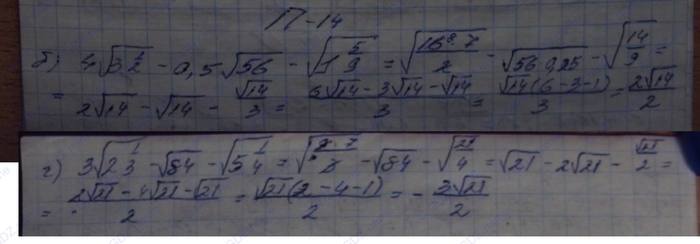 П-14
б) 4√3 1/2 - 0,5√56 - √1 5/9 = √(16⁸·7/2) - √56·0,25 - √14/9 =
= 2√14 - √14 - √14/3 = (6√14 - 3√14 - √14)/3 = √14(6-3-1)/3 = 2√14/2
г) 3√2 1/3 - √84 - √5 1/4 = √(9·7/3) - √84 - √21/4 = √21 - 2√21 - √21/2 =
= (2√21 - 4√21 - √21)/2 = √21(2-4-1)/2 = - 3√21/2